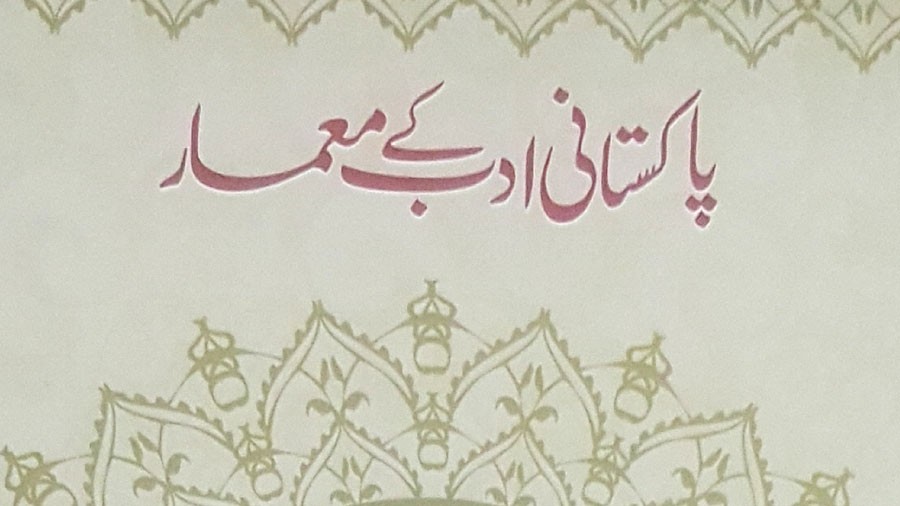 پاکستانی ادب کے معمار